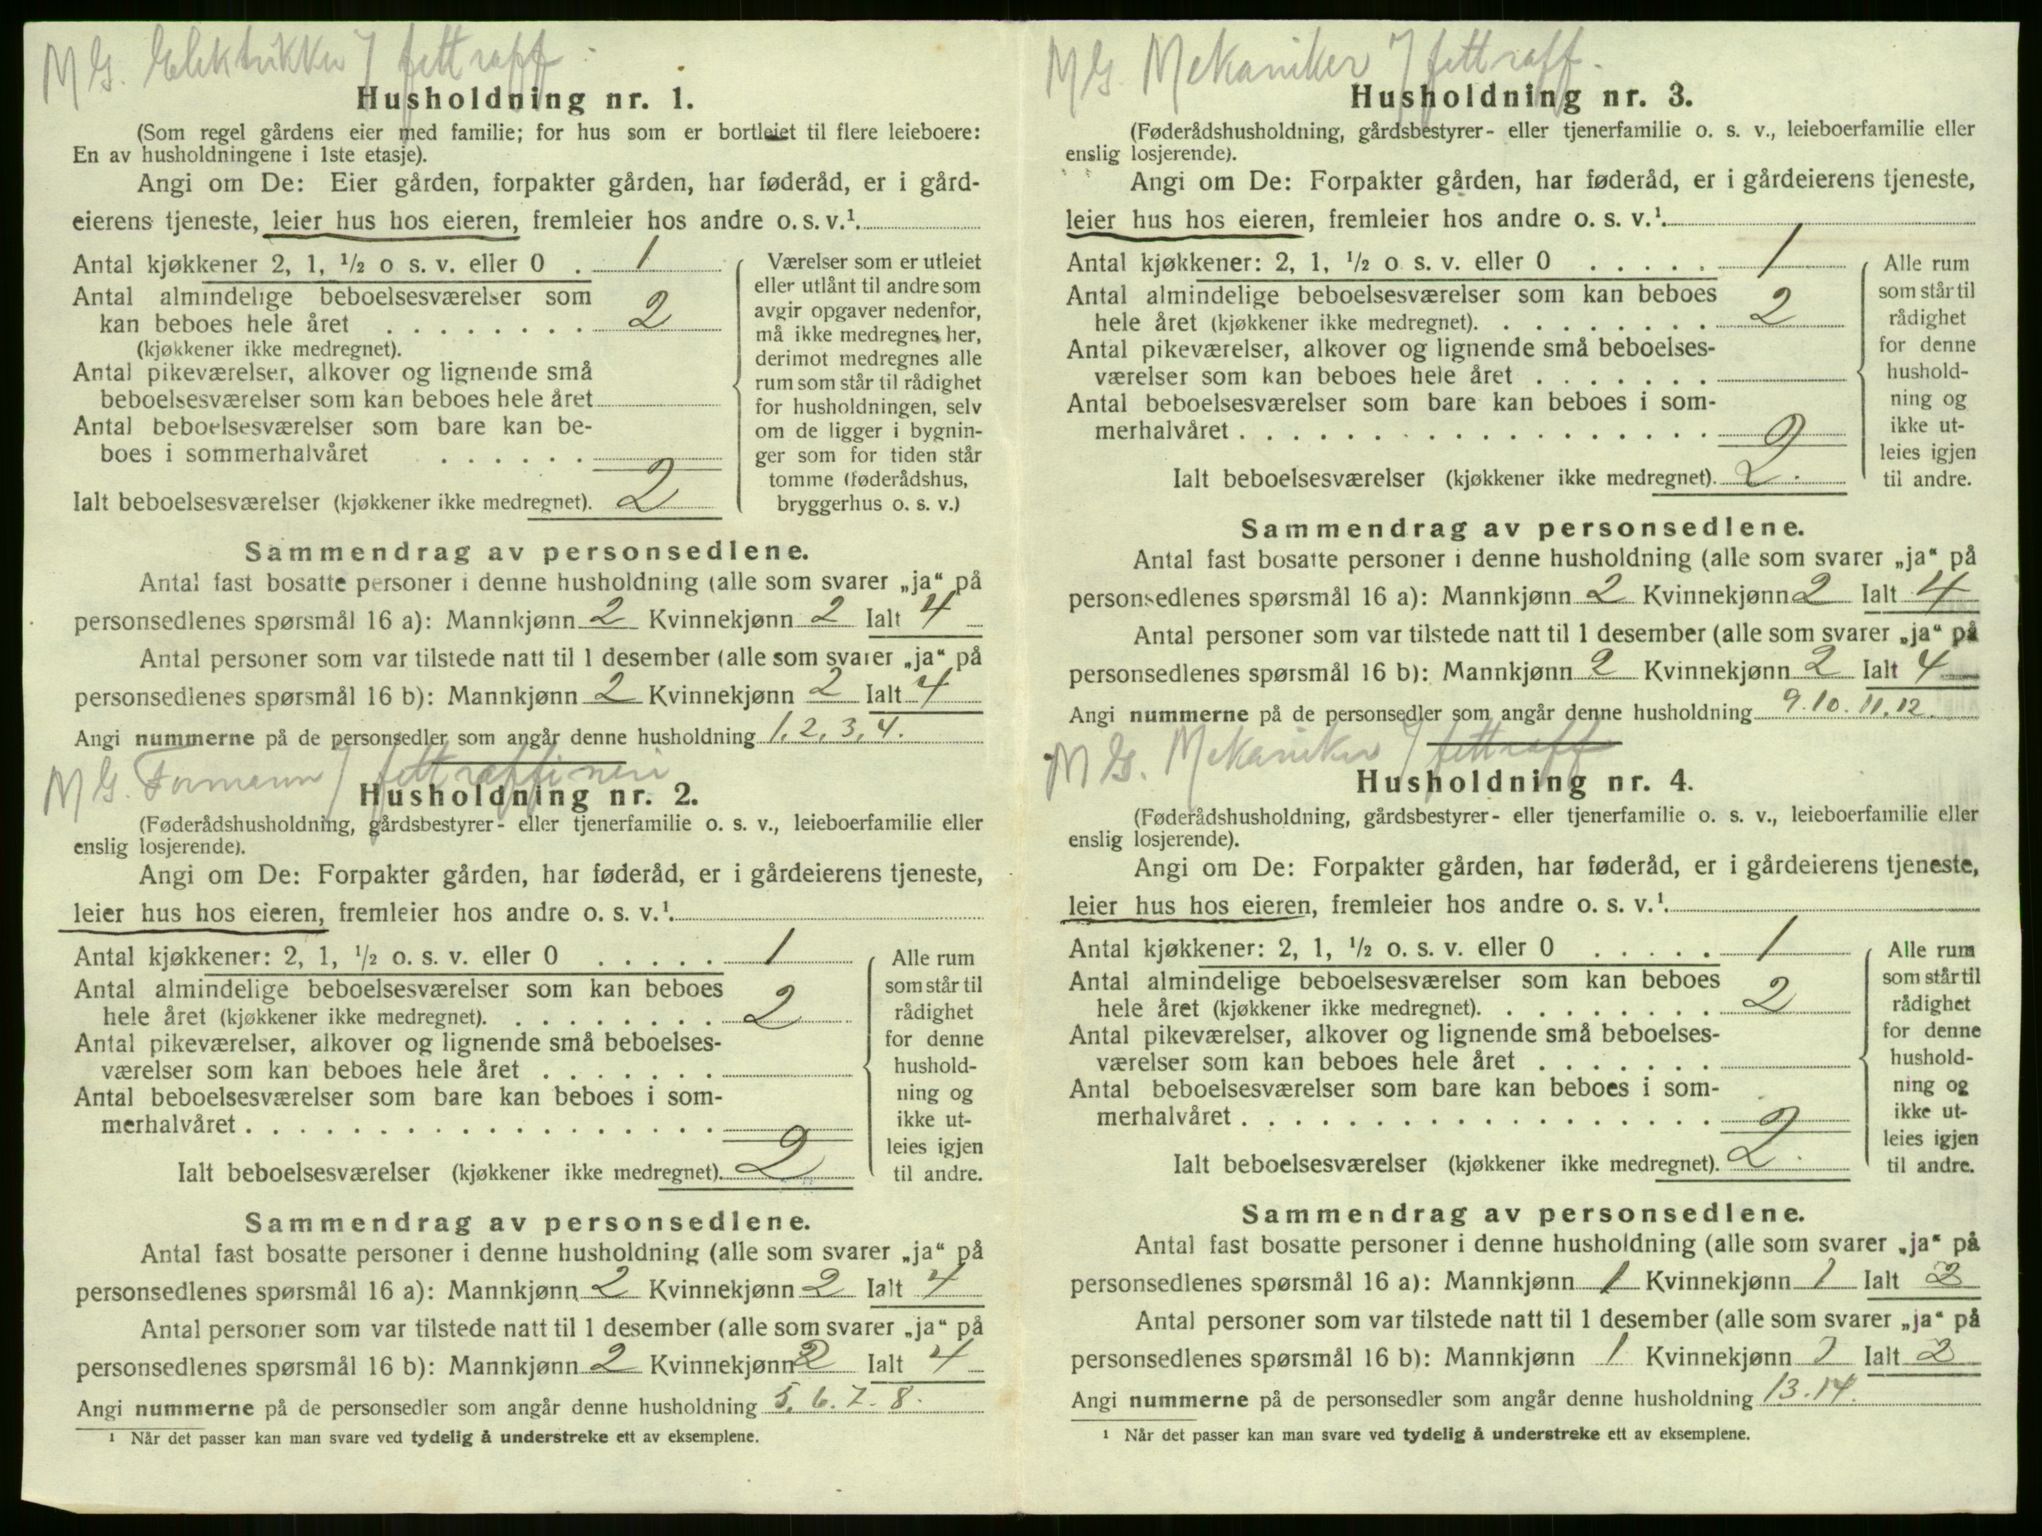 M G. Elektrikker / fettraff.
Husholdning nr. 1.
(Som regel gårdens eier med familie; for hus som er bortleiet til flere leieboere:
En av husholdningene i 1ste etasje).
Angi om De: Eier gården, forpakter gården, har føderåd, er i gård-
eierens tjeneste, leier hus hos eieren, fremleier hos andre o. s. v.¹
Antal kjøkkener 2, 1, ½ o s. v. eller 0 . 1
Antal almindelige beboelsesværelser som
kan beboes hele året . . . . . . . . 2
(kjøkkener ikke medregnet).
Antal pikeværelser, alkover og lignende små
beboelsesværelser som kan beboes hele året
Antal beboelsesværelser som bare kan be-
boes i sommerhalvåret . . . . . .
Ialt beboelsesværelser (kjøkkener ikke medregnet). 2
Værelser som er utleiet
eller utlånt til andre som
avgir opgaver nedenfor,
må ikke medregnes her,
derimot medregnes alle
rum som står til rådighet
for husholdningen, selv
om de ligger i bygnin-
ger som for tiden står
tomme (føderådshus,
bryggerhus o. s. v.)
Sammendrag av personsedlene.
Antal fast bosatte personer i denne husholdning (alle som svarer „ja“ på
personsedlenes spørsmål 16 a): Mannkjønn 2 Kvinnekjønn 2 Ialt 4
Antal personer som var tilstede natt til 1 desember (alle som svarer „ja“ på
personsedlenes spørsmål 16 b): Mannkjønn 2 Kvinnekjønn 2 Ialt 4
Angi nummerne på de personsedler som angår denne husholdning 1, 2, 3, 4.
M G. Formann / fettraffineri
Husholdning nr. 2.
(Føderådshusholdning, gårdsbestyrer- eller tjenerfamilie o. s. v., leieboerfamilie eller
enslig losjerende).
Angi om De: Forpakter gården, har føderåd, er i gårdeierens tjeneste,
leier hus hos eieren, fremleier hos andre o. s. v.¹
Antal kjøkkener: 2, 1, ½ o. s. v. eller 0 . . . . . 1
Antal almindelige beboelsesværelser som kan beboes
hele året (kjøkkener ikke medregnet). . . . . . . . . 2
Antal pikeværelser, alkover og lignende små beboelses-
værelser som kan beboes hele året . . . . . . .
Antal beboelsesværelser som bare kan beboes i som-
merhalvåret . . . . . . . . . . . . . . . . . .
Ialt beboelsesværelser (kjøkkener ikke medregnet). 2
Alle rum
som står til
rådighet
for denne
hushold-
ning og
ikke ut-
leies igjen
til andre.
Sammendrag av personsedlene.
Antal fast bosatte personer i denne husholdning (alle som svarer „ja“ på
personsedlenes spørsmål 16 a): Mannkjønn 2 Kvinnekjønn 2 Ialt 4
Antal personer som var tilstede natt til 1 desember (alle som svarer „ja“ på
personsedlenes spørsmål 16 b): Mannkjønn 2 Kvinnekjønn 2 Ialt 4
Angi nummerne på de personsedler som angår denne husholdning 5. 6. 7. 8.
¹ Når det passer kan man svare ved tydelig å understreke ett av eksemplene.
M G. Mekaniker / fettraff.
Husholdning nr. 3.
(Føderådshusholdning, gårdsbestyrer- eller tjenerfamilie o. s. v., leieboerfamilie eller
enslig losjerende).
Angi om De: Forpakter gården, har føderåd, er i gårdeierens tjeneste,
leier hus hos eieren, fremleier hos andre o. s. v.¹
Antal kjøkkener: 2, 1, ½ o. s. v. eller 0 . . . . . 1
Antal almindelige beboelsesværelser som kan beboes
hele året (kjøkkener ikke medregnet). . . . . . . . . 2
Antal pikeværelser, alkover og lignende små beboelses-
værelser som kan beboes hele året . . . . . . .
Antal beboelsesværelser som bare kan beboes i som-
merhalvåret . . . . . . . . . . . . . . . . . .
Ialt beboelsesværelser (kjøkkener ikke medregnet). 2.
Alle rum
som står til
rådighet
for denne
hushold-
ning og
ikke ut-
leies igjen
til andre.
Sammendrag av personsedlene.
Antal fast bosatte personer i denne husholdning (alle som svarer „ja“ på
personsedlenes spørsmål 16 a): Mannkjønn 2 Kvinnekjønn 2 Ialt 4
Antal personer som var tilstede natt til 1 desember (alle som svarer „ja“ på
personsedlenes spørsmål 16 b): Mannkjønn 2 Kvinnekjønn 2 Ialt 4
Angi nummerne på de personsedler som angår denne husholdning 9. 10. 11. 12.
M G. Mekaniker / fettraff
Husholdning nr. 4.
(Føderådshusholdning, gårdsbestyrer- eller tjenerfamilie o. s. v., leieboerfamilie eller
enslig losjerende).
Angi om De: Forpakter gården, har føderåd, er i gårdeierens tjeneste,
leier hus hos eieren, fremleier hos andre o. s. v.¹
Antal kjøkkener: 2, 1, ½ o. s. v. eller 0 . . . . . 1
Antal almindelige beboelsesværelser som kan beboes
hele året (kjøkkener ikke medregnet). . . . . . . . . 2
Antal pikeværelser, alkover og lignende små beboelses-
værelser som kan beboes hele året . . . . . . .
Antal beboelsesværelser som bare kan beboes i som-
merhalvåret . . . . . . . . . . . . . . . . . .
Ialt beboelsesværelser (kjøkkener ikke medregnet). 2.
Alle rum
som står til
rådighet
for denne
hushold-
ning og
ikke ut-
leies igjen
til andre.
Sammendrag av personsedlene.
Antal fast bosatte personer i denne husholdning (alle som svarer „ja“ på
personsedlenes spørsmål 16 a): Mannkjønn 1 Kvinnekjønn 1 Ialt 2
Antal personer som var tilstede natt til 1 desember (alle som svarer „ja“ på
personsedlenes spørsmål 16 b): Mannkjønn 1 Kvinnekjønn 1 Ialt 2
Angi nummerne på de personsedler som angår denne husholdning 13. 14.
¹ Når det passer kan man svare ved tydelig å understreke ett av eksemplene.